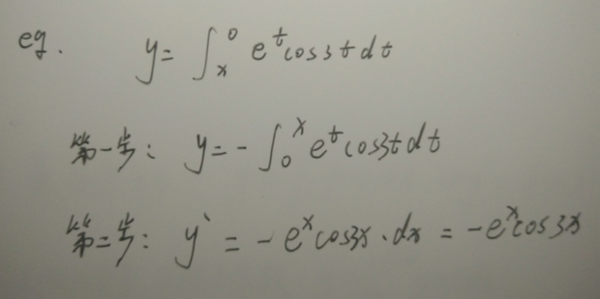 eg. y = ∫ₓ⁰ eᵗ cos3t dt
第一步: y = - ∫₀ˣ eᵗ cos3t dt
第二步: y` = - eˣ cos3x · dx = - eˣ cos3x